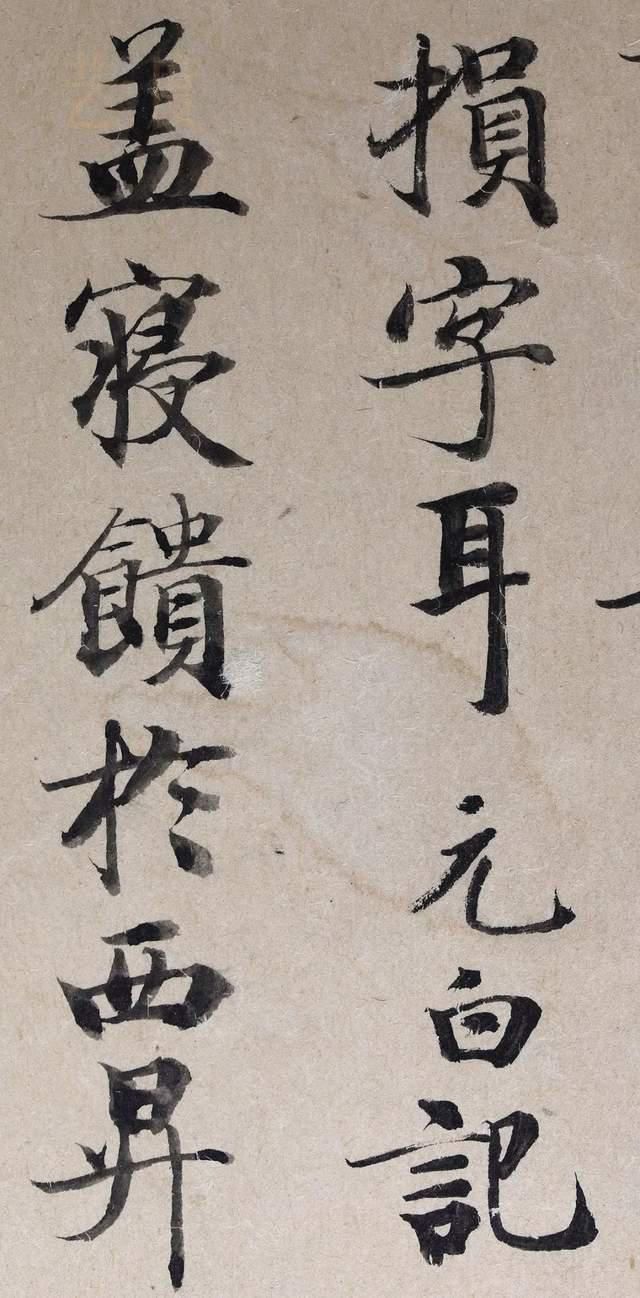 損字耳 元白記
盖寑饋於西昇